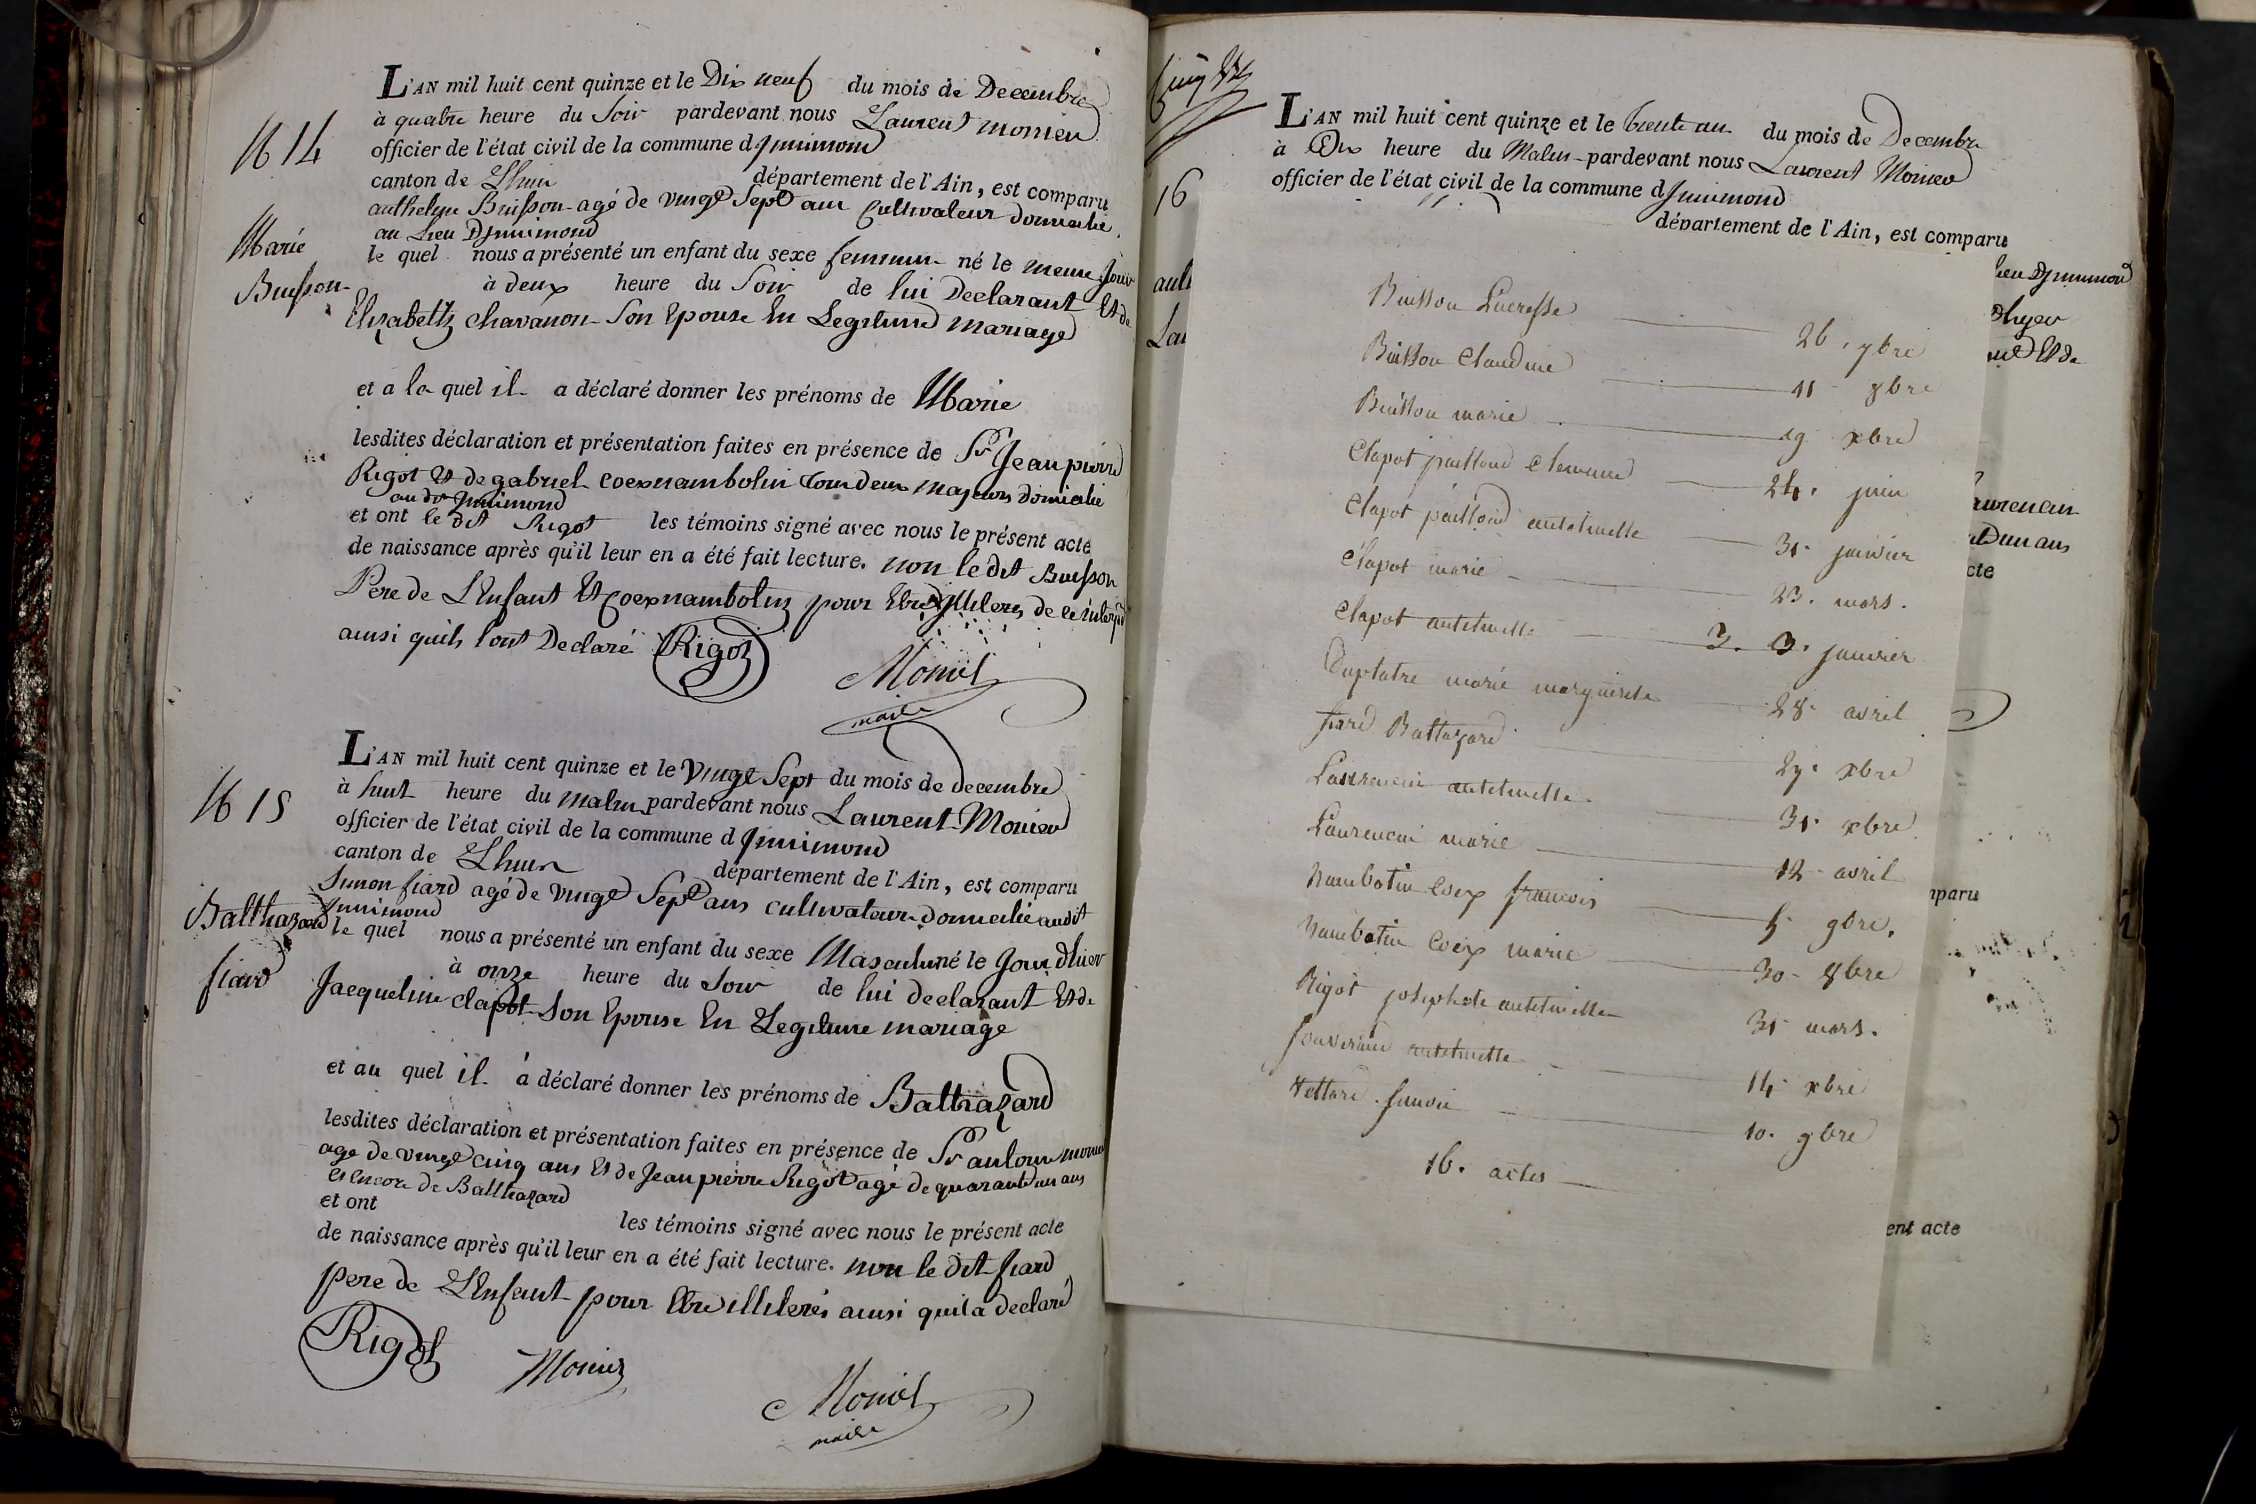 L'AN mil huit cent quinze et le Dix neuf du mois de Decembre
à quatre heure du Soir pardevant nous Laurent monier
officier de l'état civil de la commune d Jnnimond
canton de Lhuis département de l'Ain, est comparu
anthelme Buisson agé de vingt Sept ans Cultivateur domicilié
au Lieu DJnnimond
le quel nous a présenté un enfant du sexe feminin né le meme Jour
à deux heure du Soir de lui Declarant Et de
Elizabeth chavanon Son Epouse En Legitime mariage
et a la quel il a déclaré donner les prénoms de Marie
lesdites déclaration et présentation faites en présence de Sr Jean pierre
Rigot Et de gabriel coexnambotin tous deux majeurs domicilié
au dit Jnnimond
et ont le dit Rigot les témoins signé avec nous le présent acte
de naissance après qu'il leur en a été fait lecture. non le dit Buisson
Pere de L'Enfant Et Coexnambotin pour Etre illiteres de ce
ainsi quils l'ont Declaré Rigot
Monier
maire
N 14
Marie
Buisson
L'AN mil huit cent quinze et le vingt Sept du mois de decembre
à huit heure du matin pardevant nous Laurent Monier
officier de l'état civil de la commune d Jnnimond
canton de Lhuis département de l'Ain, est comparu
Simon fiard agé de vingt Sept ans cultivateur domicilié audit
Jnnimond
le quel nous a présenté un enfant du sexe Masculin né le Jour d'hier
à onze heure du Soir de lui declarant Et de
Jacqueline clapot Son Epouse En Legitime mariage
et au quel il a déclaré donner les prénoms de Balthazard
lesdites déclaration et présentation faites en présence de Sr antoine monier
age de vingt cinq ans Et de Jean pierre Rigot agé de quarante un ans
Et Encore de Balthazard
et ont les témoins signé avec nous le présent acte
de naissance après qu'il leur en a été fait lecture. non le dit fiard
pere de L'Enfant pour Etre illiterés ainsi quil a declaré
Rigot Monier
Monier
maire
N 15
Balthazard
fiard
L'AN mil huit cent quinze et le trente un du mois de Decembre
à Dix heure du Matin pardevant nous Laurent Monier
officier de l'état civil de la commune d Jnnimond
département de l'Ain, est comparu
16
Lau
lieu DJnnimond
dhyer
Et de
Laurencin
un ans
cte
mparu
ent acte
Buisson Lucresse 26. 7bre
Buisson Claudine 11 8bre
Buisson marie 19 xbre
Clapot paillond Clemence 24. juin
Clapot paillond antoinette 31. janvier
Clapot marie 23. mars.
Clapot antoinette 3. 3. janvier
Duplatre marie marguerite 28. avril
fiard Baltazard 27. xbre
Laurencin antoinette 31. xbre
Laurencin marie 12 avril
Nambotin Coex francois 5. 9bre.
Nambotin Coex marie 30. 8bre
Rigot josephete antoinette 31 mars.
Souverain antoinette 14. xbre
Tettard 10. 9bre
16. actes